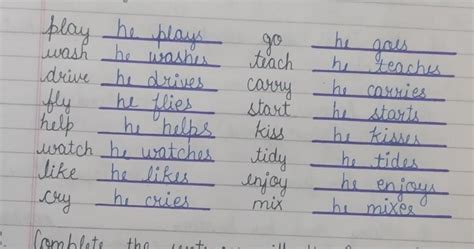 play he plays go he goes
wash he washes teach he teaches
drive he drives carry he carries
fly he flies start he starts
help he helps kiss he kisses
watch he watches tidy he tides
like he likes enjoy he enjoys
cry he cries mix he mixes
Complete the